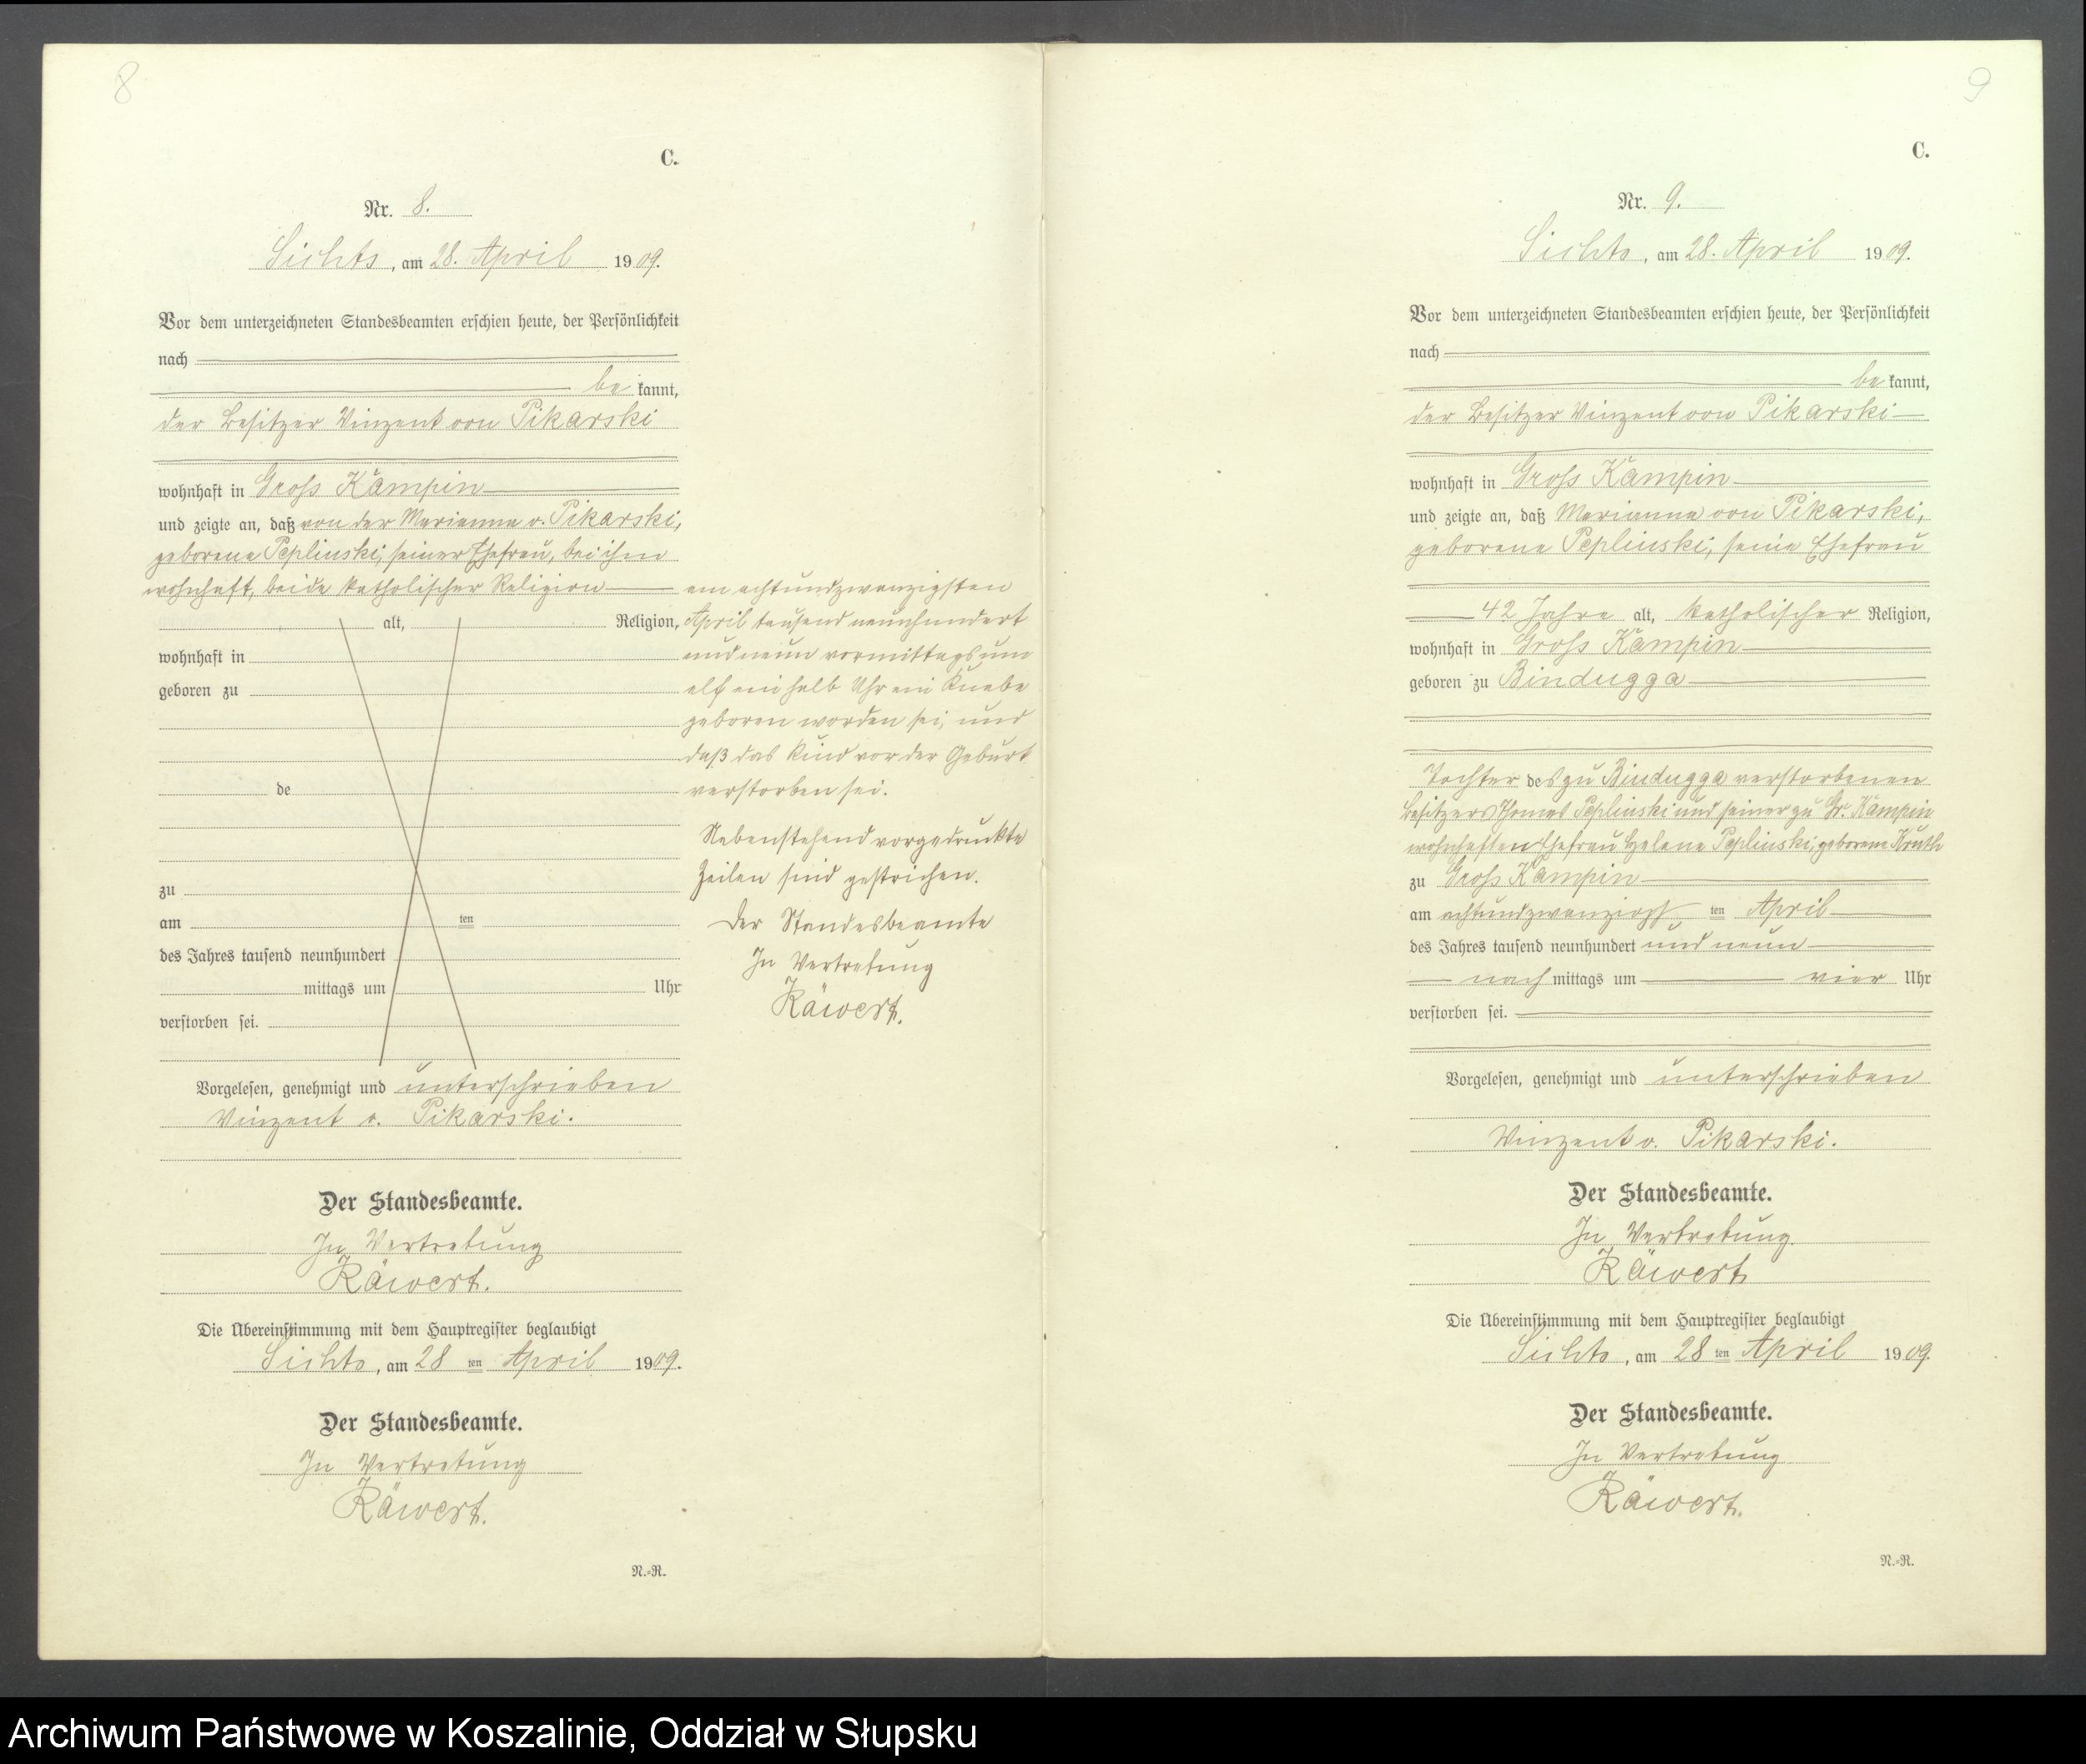 8
C.
Nr. 8.
Lichts, am 28. April 1909.
Vor dem unterzeichneten Standesbeamten erschien heute, der Persönlichkeit
nach
be kannt,
der Besitzer Vinzent von Pikarski
wohnhaft in Gross Kämpin
und zeigte an, daß von der Marianna v. Pikarski,
geborene Peplinski, seiner Ehefrau, bei ihm
wohnhaft, beide katholischer Religion
alt, Religion,
wohnhaft in
geboren zu
de
zu
am ten
des Jahres tausend neunhundert
mittags um Uhr
verstorben sei.
am achtundzwanzigsten
April tausend neunhundert
und neun vormittags um
elf ein halb Uhr ein Knabe
geboren worden sei, und
daß das Kind vor der Geburt
verstorben sei.
Nebenstehend vorgedruckte
Zeilen sind gestrichen.
Der Standesbeamte
In Vertretung
Räwert.
Vorgelesen, genehmigt und unterschrieben
Vinzent v. Pikarski.
Der Standesbeamte.
In Vertretung
Räwert.
Die Übereinstimmung mit dem Hauptregister beglaubigt
Lichts, am 28 ten April 1909.
Der Standesbeamte.
In Vertretung
Räwert.
N.=R.
9
C.
Nr. 9.
Lichts, am 28. April 1909.
Vor dem unterzeichneten Standesbeamten erschien heute, der Persönlichkeit
nach
be kannt,
der Besitzer Vinzent von Pikarski
wohnhaft in Gross Kämpin
und zeigte an, daß Marianna von Pikarski,
geborene Peplinski, seine Ehefrau
42 Jahre alt, katholischer Religion,
wohnhaft in Gross Kämpin
geboren zu Bindugga
Tochter des zu Bindugga verstorbenen
Besitzers Thomas Peplinski und seiner zu Gr. Kämpin
wohnhaften Ehefrau Helene Peplinski, geborene
zu Gross Kämpin
am achtundzwanzigst ten April
des Jahres tausend neunhundert und neun
nach mittags um vier Uhr
verstorben sei.
Vorgelesen, genehmigt und unterschrieben
Vinzent v. Pikarski.
Der Standesbeamte.
In Vertretung
Räwert
Die Übereinstimmung mit dem Hauptregister beglaubigt
Lichts, am 28 ten April 1909.
Der Standesbeamte.
In Vertretung
Räwert.
N.=R.
Archiwum Państwowe w Koszalinie, Oddział w Słupsku